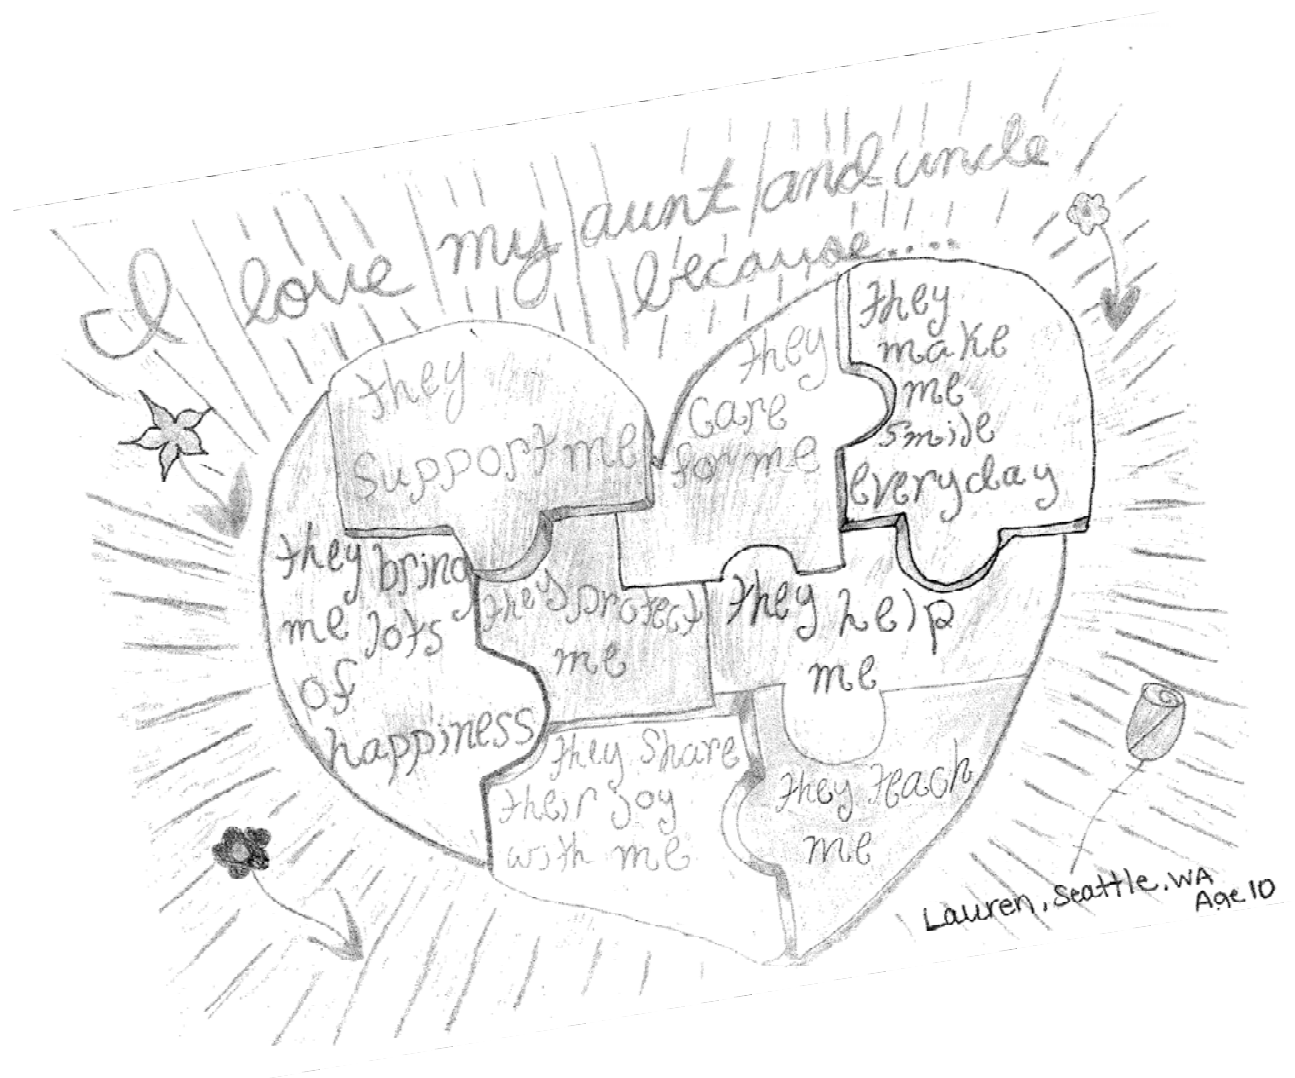 I love my aunt and uncle
because.....
they
support me
they
care
for me
they
make
me
smile
everyday
they bring
me lots
of
happiness
they protect
me
they help
me
they share
their joy
with me
they teach
me
Lauren, Seattle, WA
Age 10